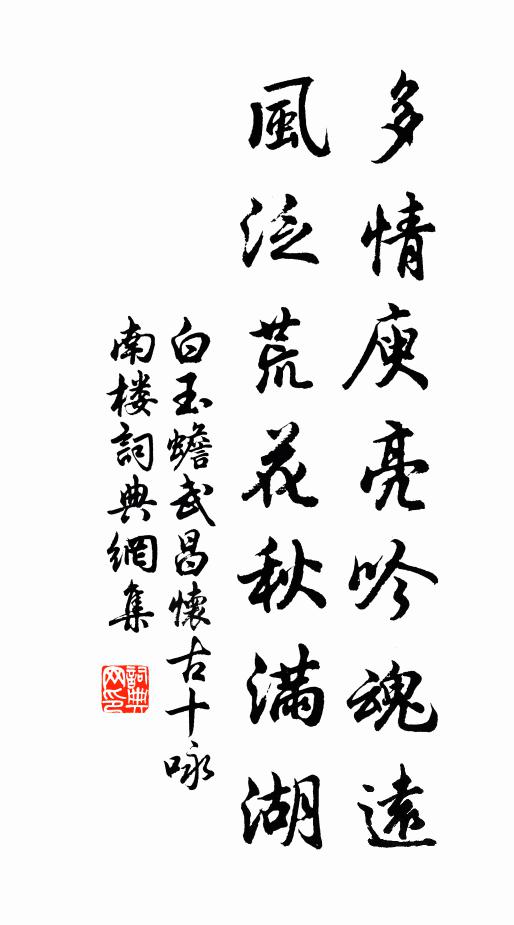 多情庾亮吟魂遠
風泛荒花秋滿湖
白玉蟾武昌懷古十咏
南楼詞典網集
詞典网印